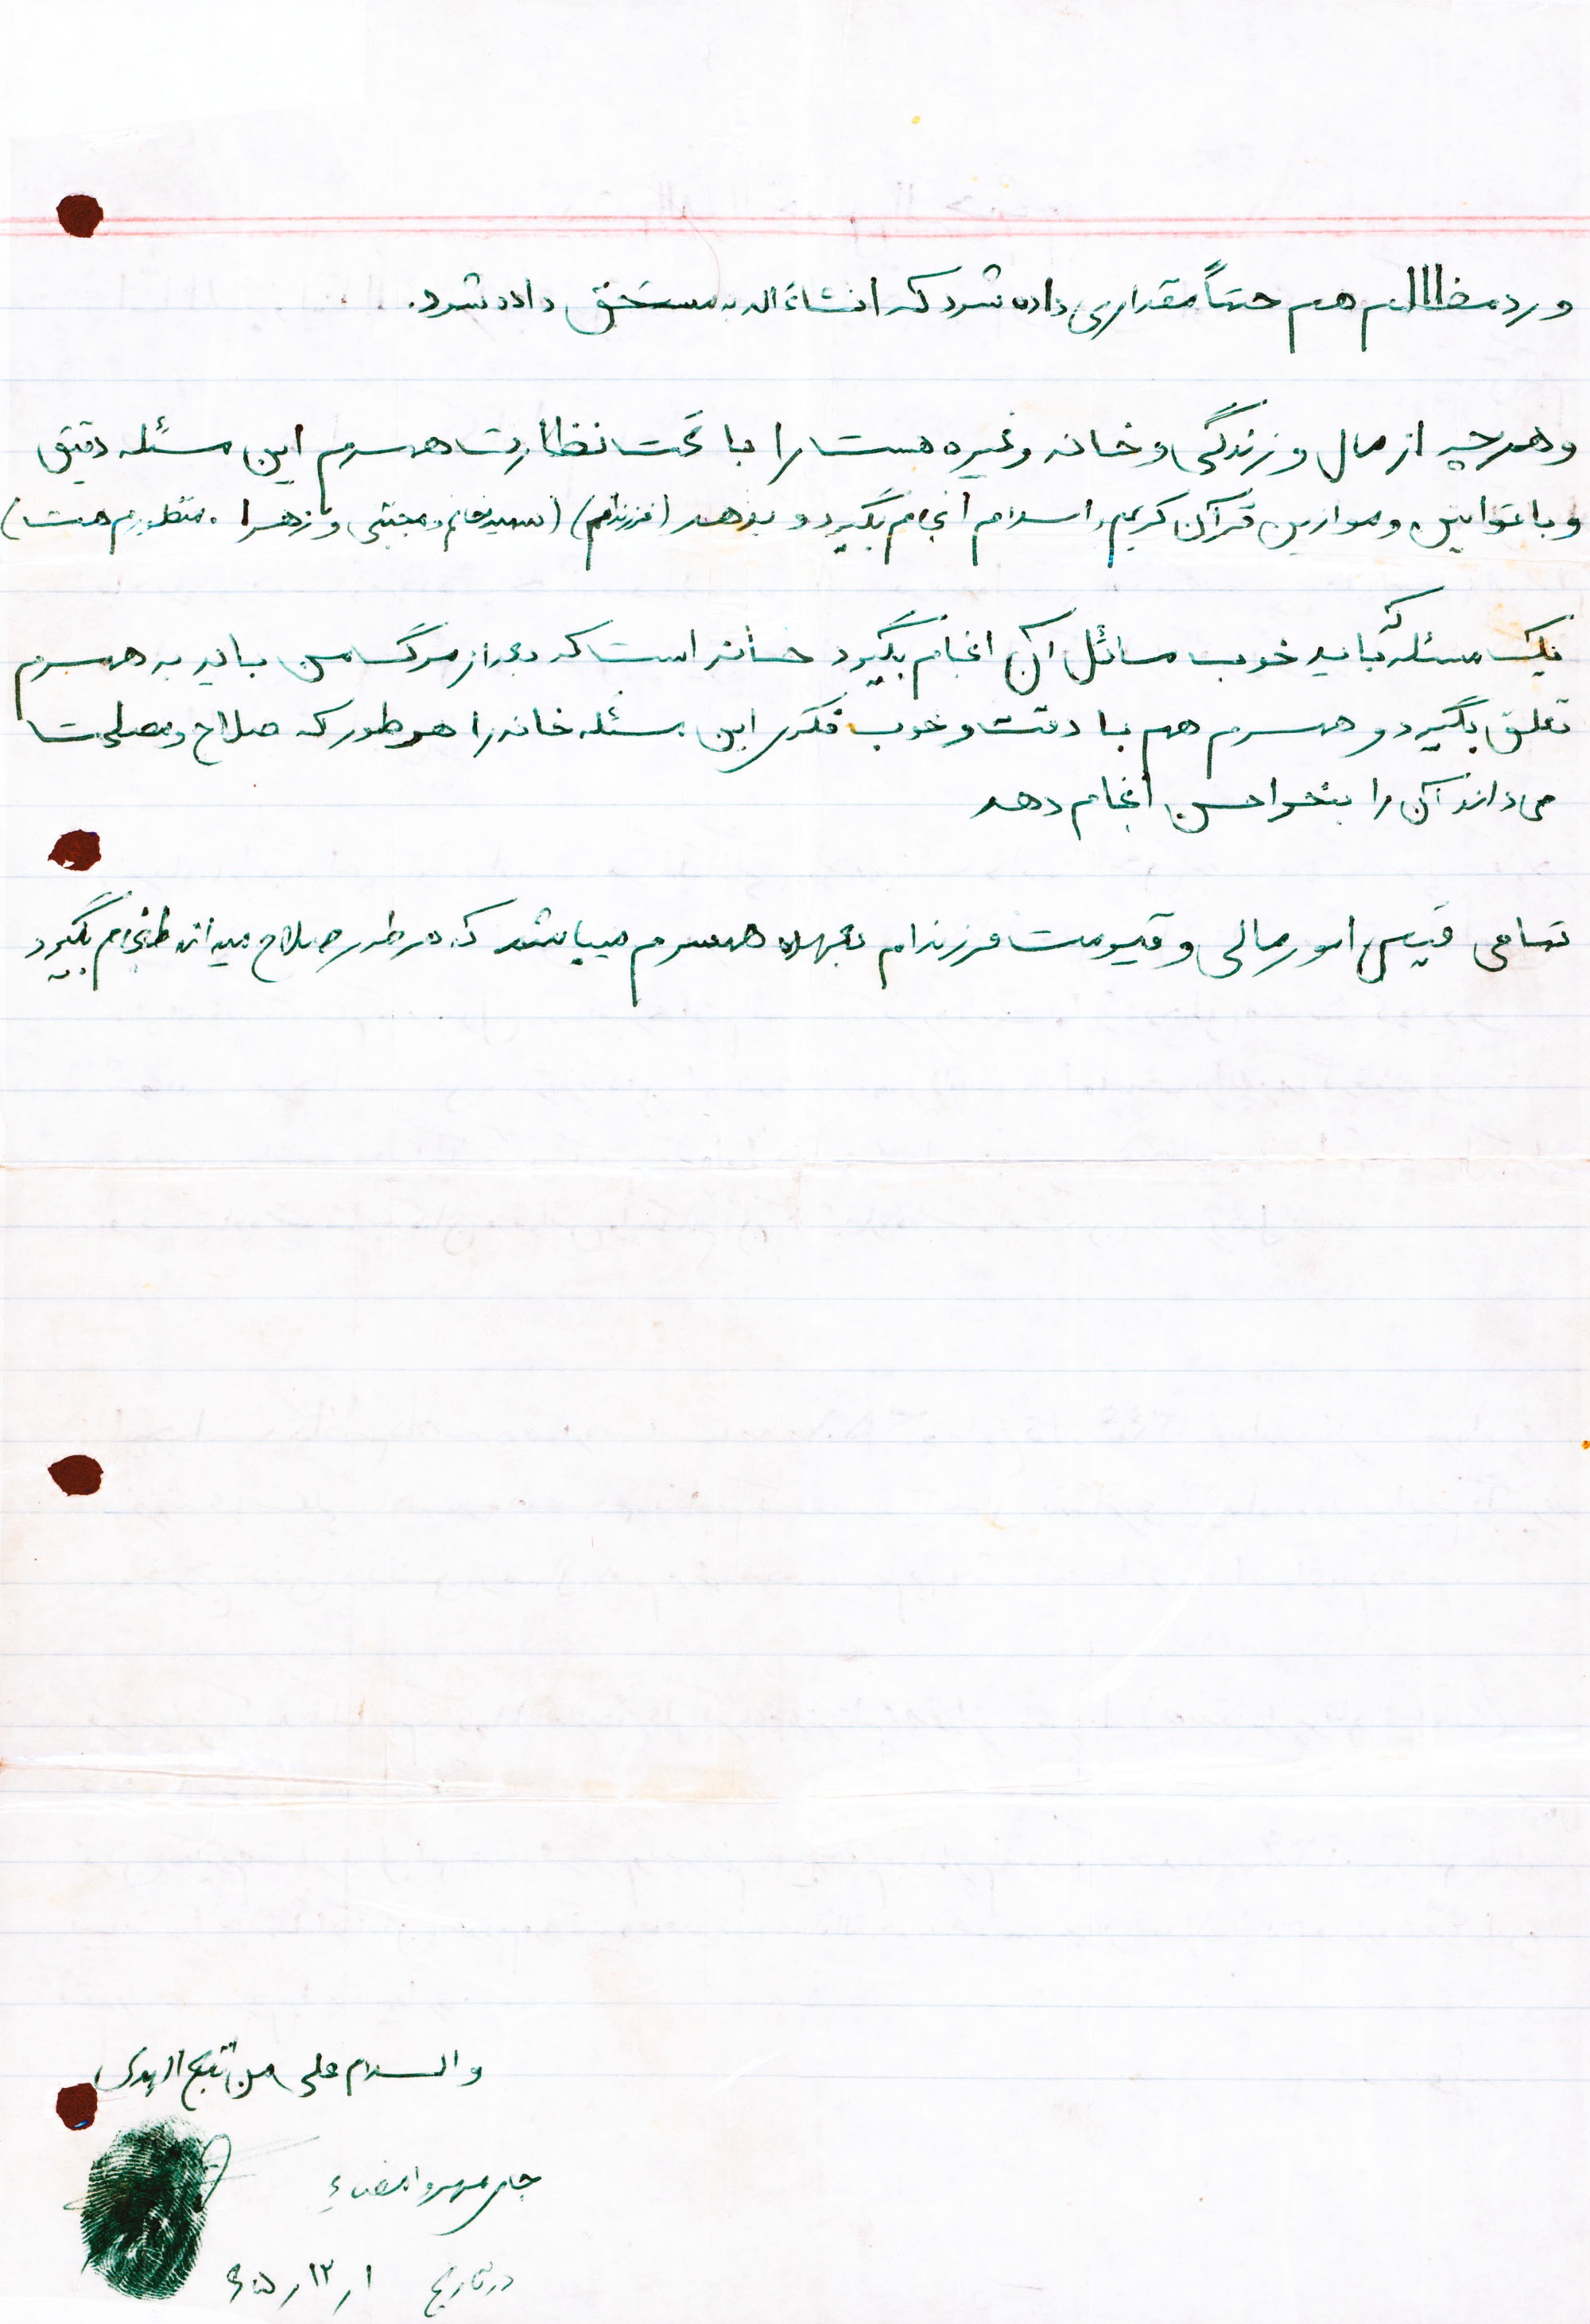 و رد مظالم هم حتماً مقداری داده شود که انشاءاله به مستحق داده شود.
و هر چه از مال و زندگی و خانه و غیره هست را با تحت نظارت همسرم این مسئله دقیق
و با قوانین و موازین قرآن کریم و اسلام انجام بگیرد و بدهد (فرزندانم) (خانم و مجتبی و زهرا . منظورم هست)
یک مسئله که باید خوب مسائل آن انجام بگیرد خانه است که بعد از مرگ من باید به همسرم
تعلق بگیرد و همسرم هم با دقت و خوب فکری این مسئله خانه را هر طور که صلاح و مصلحت
می داند آن را بنحو احسن انجام دهد
تمامی امور مالی و قیومت فرزندام بعهده همسرم میباشد که هر طور صلاح میداند انجام بگیرد
والسلام علی من اتبع الهدی
جای مهر و امضاء
در تاریخ ۱ر۱۲ر۶۵